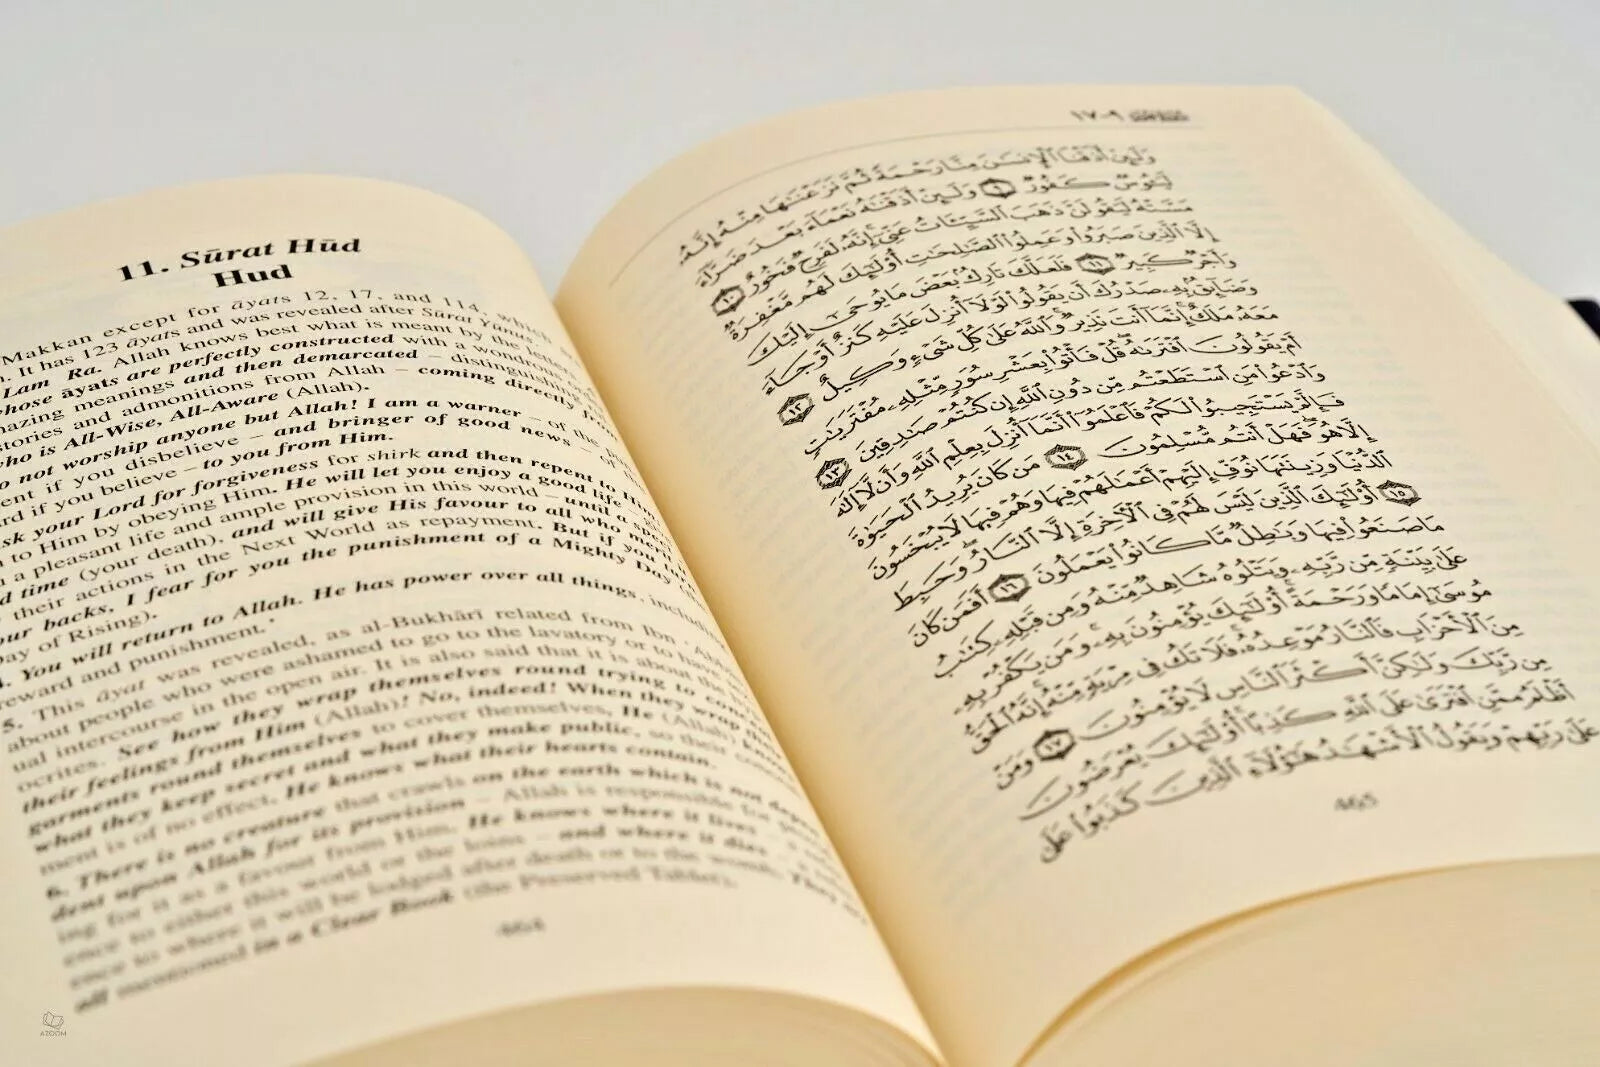 11. Sūrat Hūd
Hud
Makkan except for āyats 12, 17, and 114, which
. It has 123 āyats and was revealed after Sūrat Yūnus.
Lam Ra. Allah knows best what is meant by the letters
whose āyats are perfectly constructed with a wondrous
meanings and then demarcated – distinguishing
stories and admonitions from Allah – coming directly from
who is All-Wise, All-Aware (Allah).
not worship anyone but Allah! I am a warner – of the
if you disbelieve – and bringer of good news – of
if you believe – to you from Him.
your Lord for forgiveness for shirk and then repent to Him
to Him by obeying Him. He will let you enjoy a good life
a pleasant life and ample provision in this world – until a
time (your death), and will give His favour to all who merit
their actions in the Next World as repayment. But if you turn
your backs, I fear for you the punishment of a Mighty Day (the
Day of Rising).
4. You will return to Allah. He has power over all things, including
reward and punishment.'
5. This āyat was revealed, as al-Bukhārī related from Ibn
about people who were ashamed to go to the lavatory or to have
intercourse in the open air. It is also said that it is about the
See how they wrap themselves round trying to conceal
their feelings from Him (Allah)! No, indeed! When they wrap their
garments round themselves to cover themselves, He (Allah) knows
what they keep secret and what they make public, so their
ment is of no effect. He knows what their hearts contain.
6. There is no creature that crawls on the earth which is not depen-
dent upon Allah for its provision – Allah is responsible for
ing for it as a favour from Him. He knows where it lives –
ence to either this world or the loins – and where it dies –
ence to where it will be lodged after death or to the womb. They are
all mentioned in a Clear Book (the Preserved Tablet).
464
AZOOM
١٧-٩
وَلَئِنْ أَذَقْنَا ٱلْإِنسَٰنَ مِنَّا رَحْمَةً ثُمَّ نَزَعْنَٰهَا مِنْهُ إِنَّهُۥ
لَيَـُٔوسٌ كَفُورٌ ٩ وَلَئِنْ أَذَقْنَٰهُ نَعْمَآءَ بَعْدَ ضَرَّآءَ
مَسَّتْهُ لَيَقُولَنَّ ذَهَبَ ٱلسَّيِّـَٔاتُ عَنِّىٓ إِنَّهُۥ لَفَرِحٌ فَخُورٌ ١٠
إِلَّا ٱلَّذِينَ صَبَرُوا۟ وَعَمِلُوا۟ ٱلصَّٰلِحَٰتِ أُو۟لَٰٓئِكَ لَهُم مَّغْفِرَةٌ
وَأَجْرٌ كَبِيرٌ ١١ فَلَعَلَّكَ تَارِكٌۢ بَعْضَ مَا يُوحَىٰٓ إِلَيْكَ
وَضَآئِقٌۢ بِهِۦ صَدْرُكَ أَن يَقُولُوا۟ لَوْلَآ أُنزِلَ عَلَيْهِ كَنزٌ أَوْ جَآءَ
مَعَهُۥ مَلَكٌ إِنَّمَآ أَنتَ نَذِيرٌ وَٱللَّهُ عَلَىٰ كُلِّ شَىْءٍ وَكِيلٌ ١٢
أَمْ يَقُولُونَ ٱفْتَرَىٰهُ قُلْ فَأْتُوا۟ بِعَشْرِ سُوَرٍ مِّثْلِهِۦ مُفْتَرَيَٰتٍ
وَٱدْعُوا۟ مَنِ ٱسْتَطَعْتُم مِّن دُونِ ٱللَّهِ إِن كُنتُمْ صَٰدِقِينَ ١٣
فَإِلَّمْ يَسْتَجِيبُوا۟ لَكُمْ فَٱعْلَمُوٓا۟ أَنَّمَآ أُنزِلَ بِعِلْمِ ٱللَّهِ وَأَن لَّآ إِلَٰهَ
إِلَّا هُوَ فَهَلْ أَنتُم مُّسْلِمُونَ ١٤ مَن كَانَ يُرِيدُ ٱلْحَيَوٰةَ
ٱلدُّنْيَا وَزِينَتَهَا نُوَفِّ إِلَيْهِمْ أَعْمَٰلَهُمْ فِيهَا وَهُمْ فِيهَا لَا يُبْخَسُونَ
١٥ أُو۟لَٰٓئِكَ ٱلَّذِينَ لَيْسَ لَهُمْ فِى ٱلْءَاخِرَةِ إِلَّا ٱلنَّارُ وَحَبِطَ
مَا صَنَعُوا۟ فِيهَا وَبَٰطِلٌ مَّا كَانُوا۟ يَعْمَلُونَ ١٦ أَفَمَن كَانَ
عَلَىٰ بَيِّنَةٍ مِّن رَّبِّهِۦ وَيَتْلُوهُ شَاهِدٌ مِّنْهُ وَمِن قَبْلِهِۦ كِتَٰبُ
مُوسَىٰٓ إِمَامًا وَرَحْمَةً أُو۟لَٰٓئِكَ يُؤْمِنُونَ بِهِۦ وَمَن يَكْفُرْ بِهِۦ
مِنَ ٱلْأَحْزَابِ فَٱلنَّارُ مَوْعِدُهُۥ فَلَا تَكُ فِى مِرْيَةٍ مِّنْهُ إِنَّهُ ٱلْحَقُّ
مِن رَّبِّكَ وَلَٰكِنَّ أَكْثَرَ ٱلنَّاسِ لَا يُؤْمِنُونَ ١٧ وَمَنْ
أَظْلَمُ مِمَّنِ ٱفْتَرَىٰ عَلَى ٱللَّهِ كَذِبًا أُو۟لَٰٓئِكَ يُعْرَضُونَ
عَلَىٰ رَبِّهِمْ وَيَقُولُ ٱلْأَشْهَٰدُ هَٰٓؤُلَآءِ ٱلَّذِينَ كَذَبُوا۟ عَلَىٰ
465